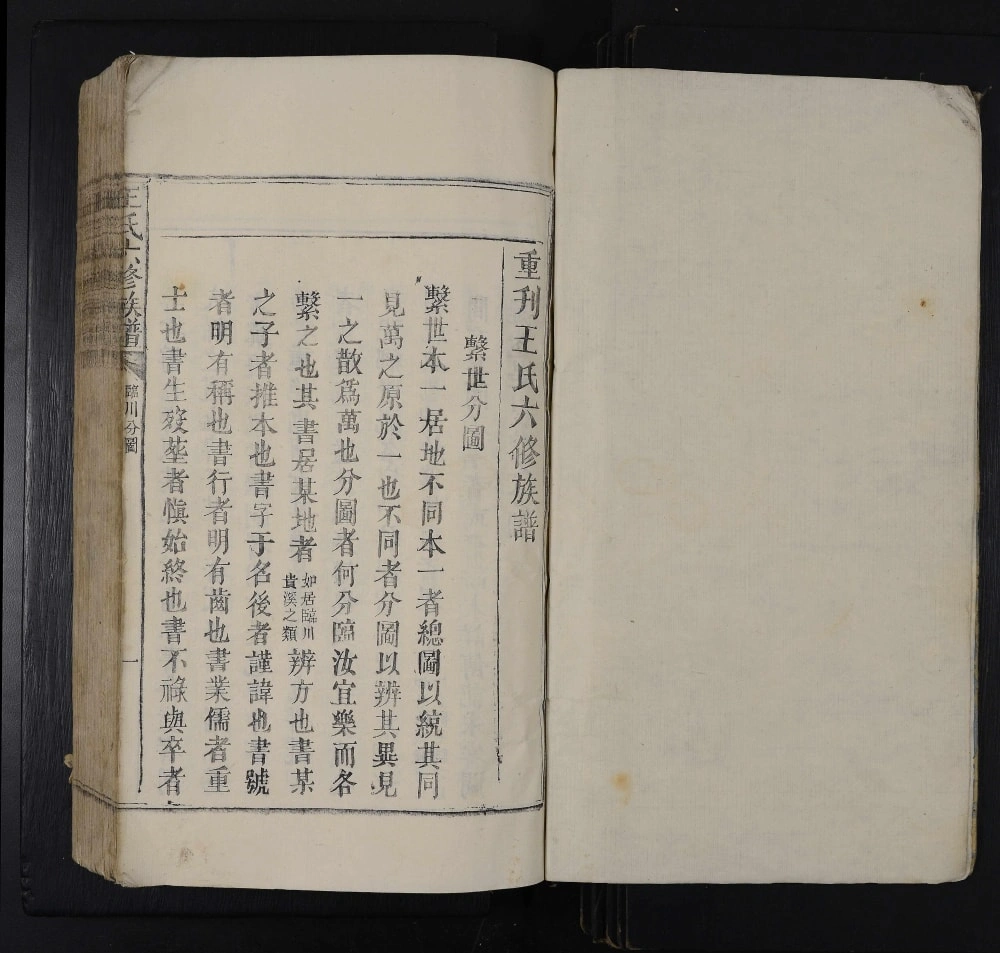 重刊王氏六修族譜
繫世分圖
繫世本一居地不同本一者總圖以統其同
見萬之原於一也不同者分圖以辨其異見
一之散爲萬也分圖者何分臨汝宜樂而各
繫之也其書居某地者如居臨川貴溪之類辨方也書某
之子者推本也書字于名後者謹諱也書號
者明有稱也書行者明有齒也書業儒者重
士也書生歿塟者愼始終也書不祿與卒者
王氏六修族譜 臨川分圖 一